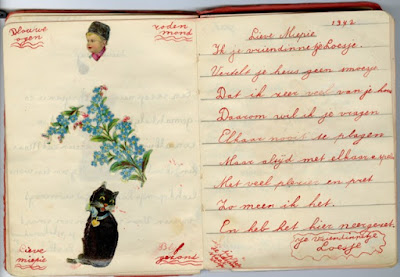 Blouwe
ogen
rooden
mond
Lieve
miepie
gezond
1942
Lieve Miepie
Ik je vriendinnetje Loesje.
Vertelt je heus geen smoesje
Dat ik zeer veel van je hou
Daarom wil ik je vragen
Elkaar nooit te plagen
Maar altijd met elkaar
Met veel plezier en pret
Zo meen ik het.
En heb het hier neergezet.
Je Vriendinnetje
Loesje